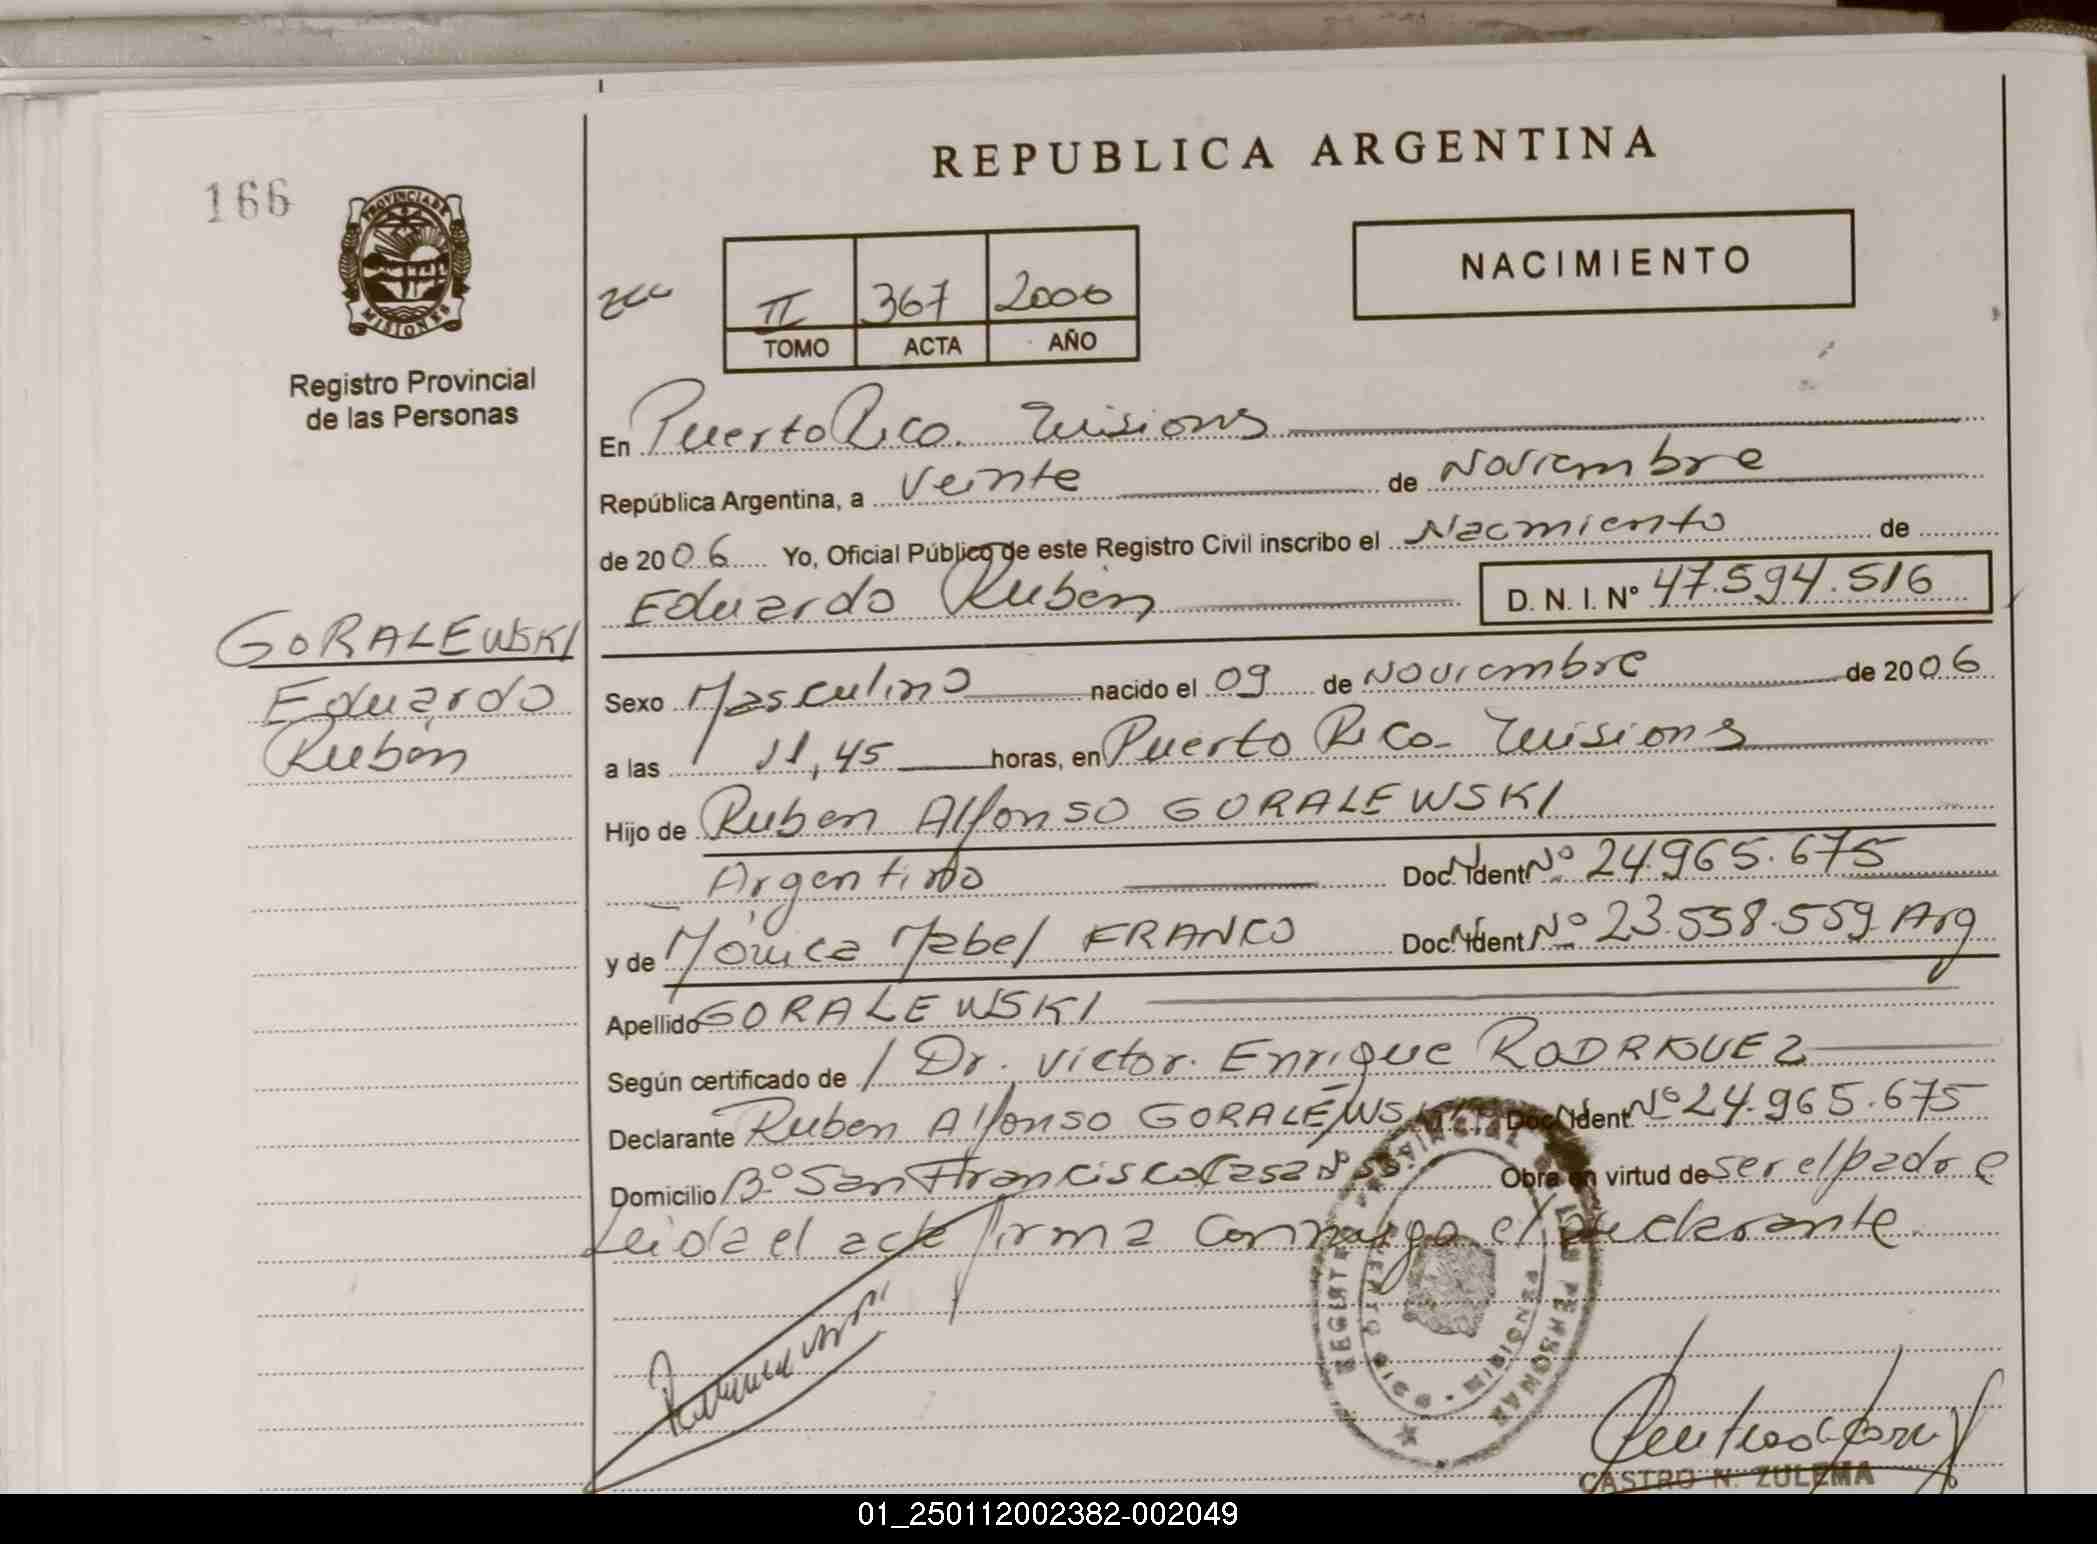 REPUBLICA ARGENTINA
166
PROVINCIA DE
MISIONES
NACIMIENTO
II 367 2006
TOMO ACTA AÑO
Registro Provincial
de las Personas
En Puerto Rico. Misiones
República Argentina, a Veinte de Noviembre
de 2006 Yo, Oficial Público de este Registro Civil inscribo el Nacimiento de
Eduardo Rubén D. N. I. Nº 47.594.516
GORALEWSKI
Eduardo
Rubén
Sexo Masculino nacido el 09 de Noviembre de 2006
a las 11,45 horas, en Puerto Rico - Misiones
Hijo de Ruben Alfonso GORALEWSKI
Argentino Doc. Ident. Nº 24.965.675
y de Mónica Mabel FRANCO Doc. Ident. Nº 23.558.559 Arg
Apellido GORALEWSKI
Según certificado de / Dr. Victor. Enrique RODRIGUEZ
Declarante Ruben Alfonso GORALEWSKI Doc. Ident. Nº 24.965.675
Domicilio Bº San Francisco Casa Nº Obra en virtud de ser el padre
Leida el acta firma conmigo el declarante.
REGISTRO PROVINCIAL DE LAS PERSONAS
PUERTO RICO MISIONES
CASTRO N. ZULEMA
01_250112002382-002049